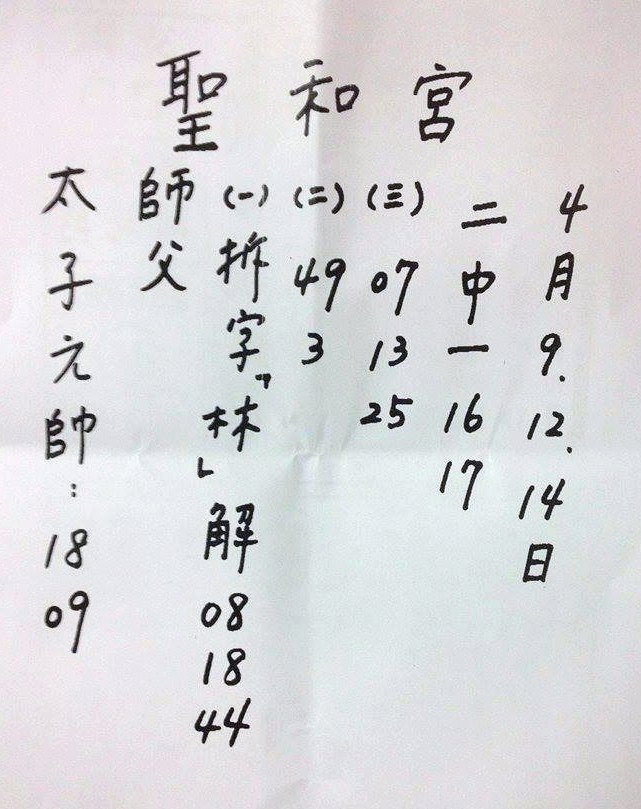 聖和宮
4月9.12.14日
二中一 16 17
(三) 07 13 25
(二) 49 3
(一) 拆字「林」解 08 18 44
師父
太子元帥：18 09